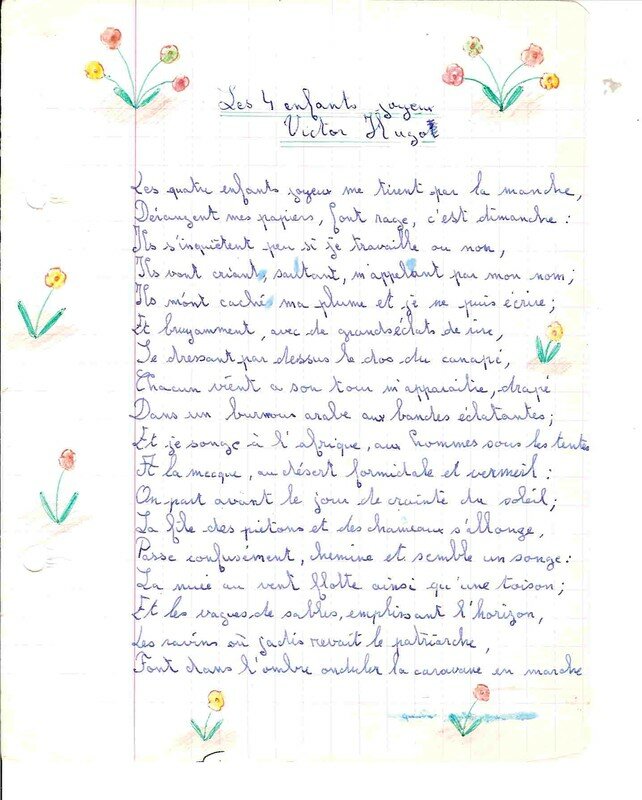 Les 4 enfants joyeux
Victor Hugo
Les quatre enfants joyeux me tirent par la manche,
Dérangent mes papiers, font rage, c'est dimanche :
Ils s'inquiètent peu si je travaille ou non,
Ils vont criant, sautant, m'appelant par mon nom ;
Ils m'ont caché ma plume et je ne puis écrire ;
Et bruyamment, avec de grands éclats de rire,
Se dressant par dessus le dos du canapé,
Chacun vient a son tour m'apparaitre, drapé
Dans un burnous arabe aux bandes éclatantes ;
Et je songe à l'afrique, aux hommes sous les tentes
A la mecque, au désert formidable et vermeil :
On part avant le jour de crainte du soleil ;
La file des piétons et des chameaux s'allonge,
Passe confusément, chemine et semble un songe :
La nuée au vent flotte ainsi qu'une toison ;
Et les vagues de sables, emplissant l'horizon,
Les ravins où jadis revait le patriarche,
Font dans l'ombre onduler la caravane en marche